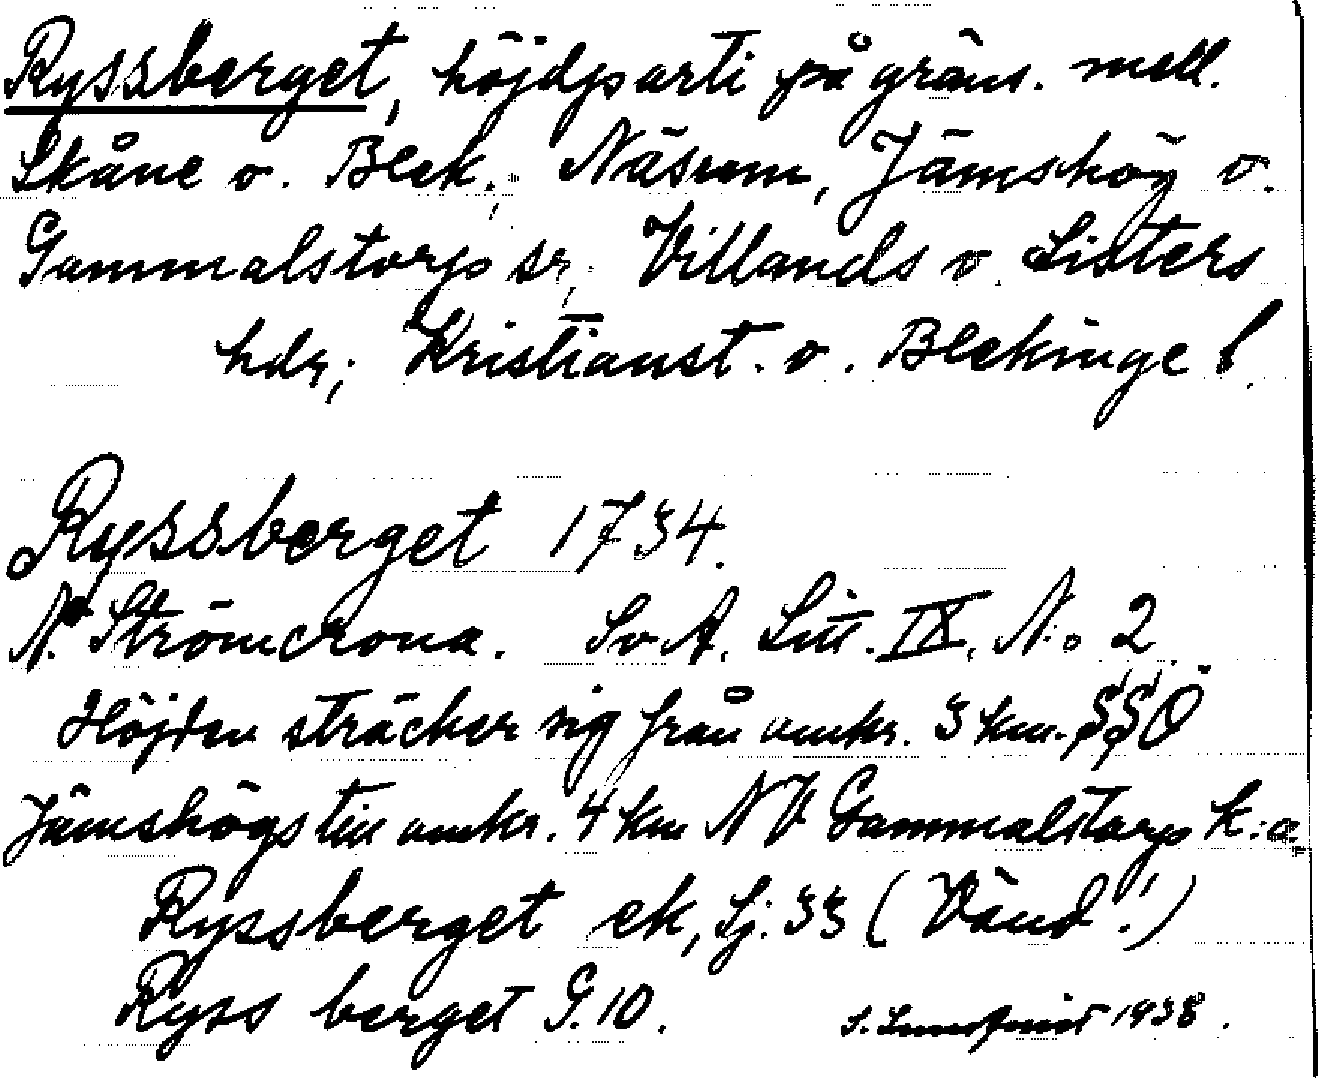 Ryssberget, höjdparti på gräns. mell.
Skåne o. Blek.; Näsum, Jämshög o.
Gammalstorp sr; Villands o. Listers
hdr; Kristianst. o. Blekinge l.
Ryssberget 1734.
N. Strömcrona. Sv. A. Litt. IX, N:o 2
Höjden sträcker sig från omkr. 3 km. SSO
Jämshögs till omkr. 4 km NV Gammalstorps k:a.
Ryssberget ek, Lj. 33 (Vänd!)
Ryss berget G. 10.
S. 1938.